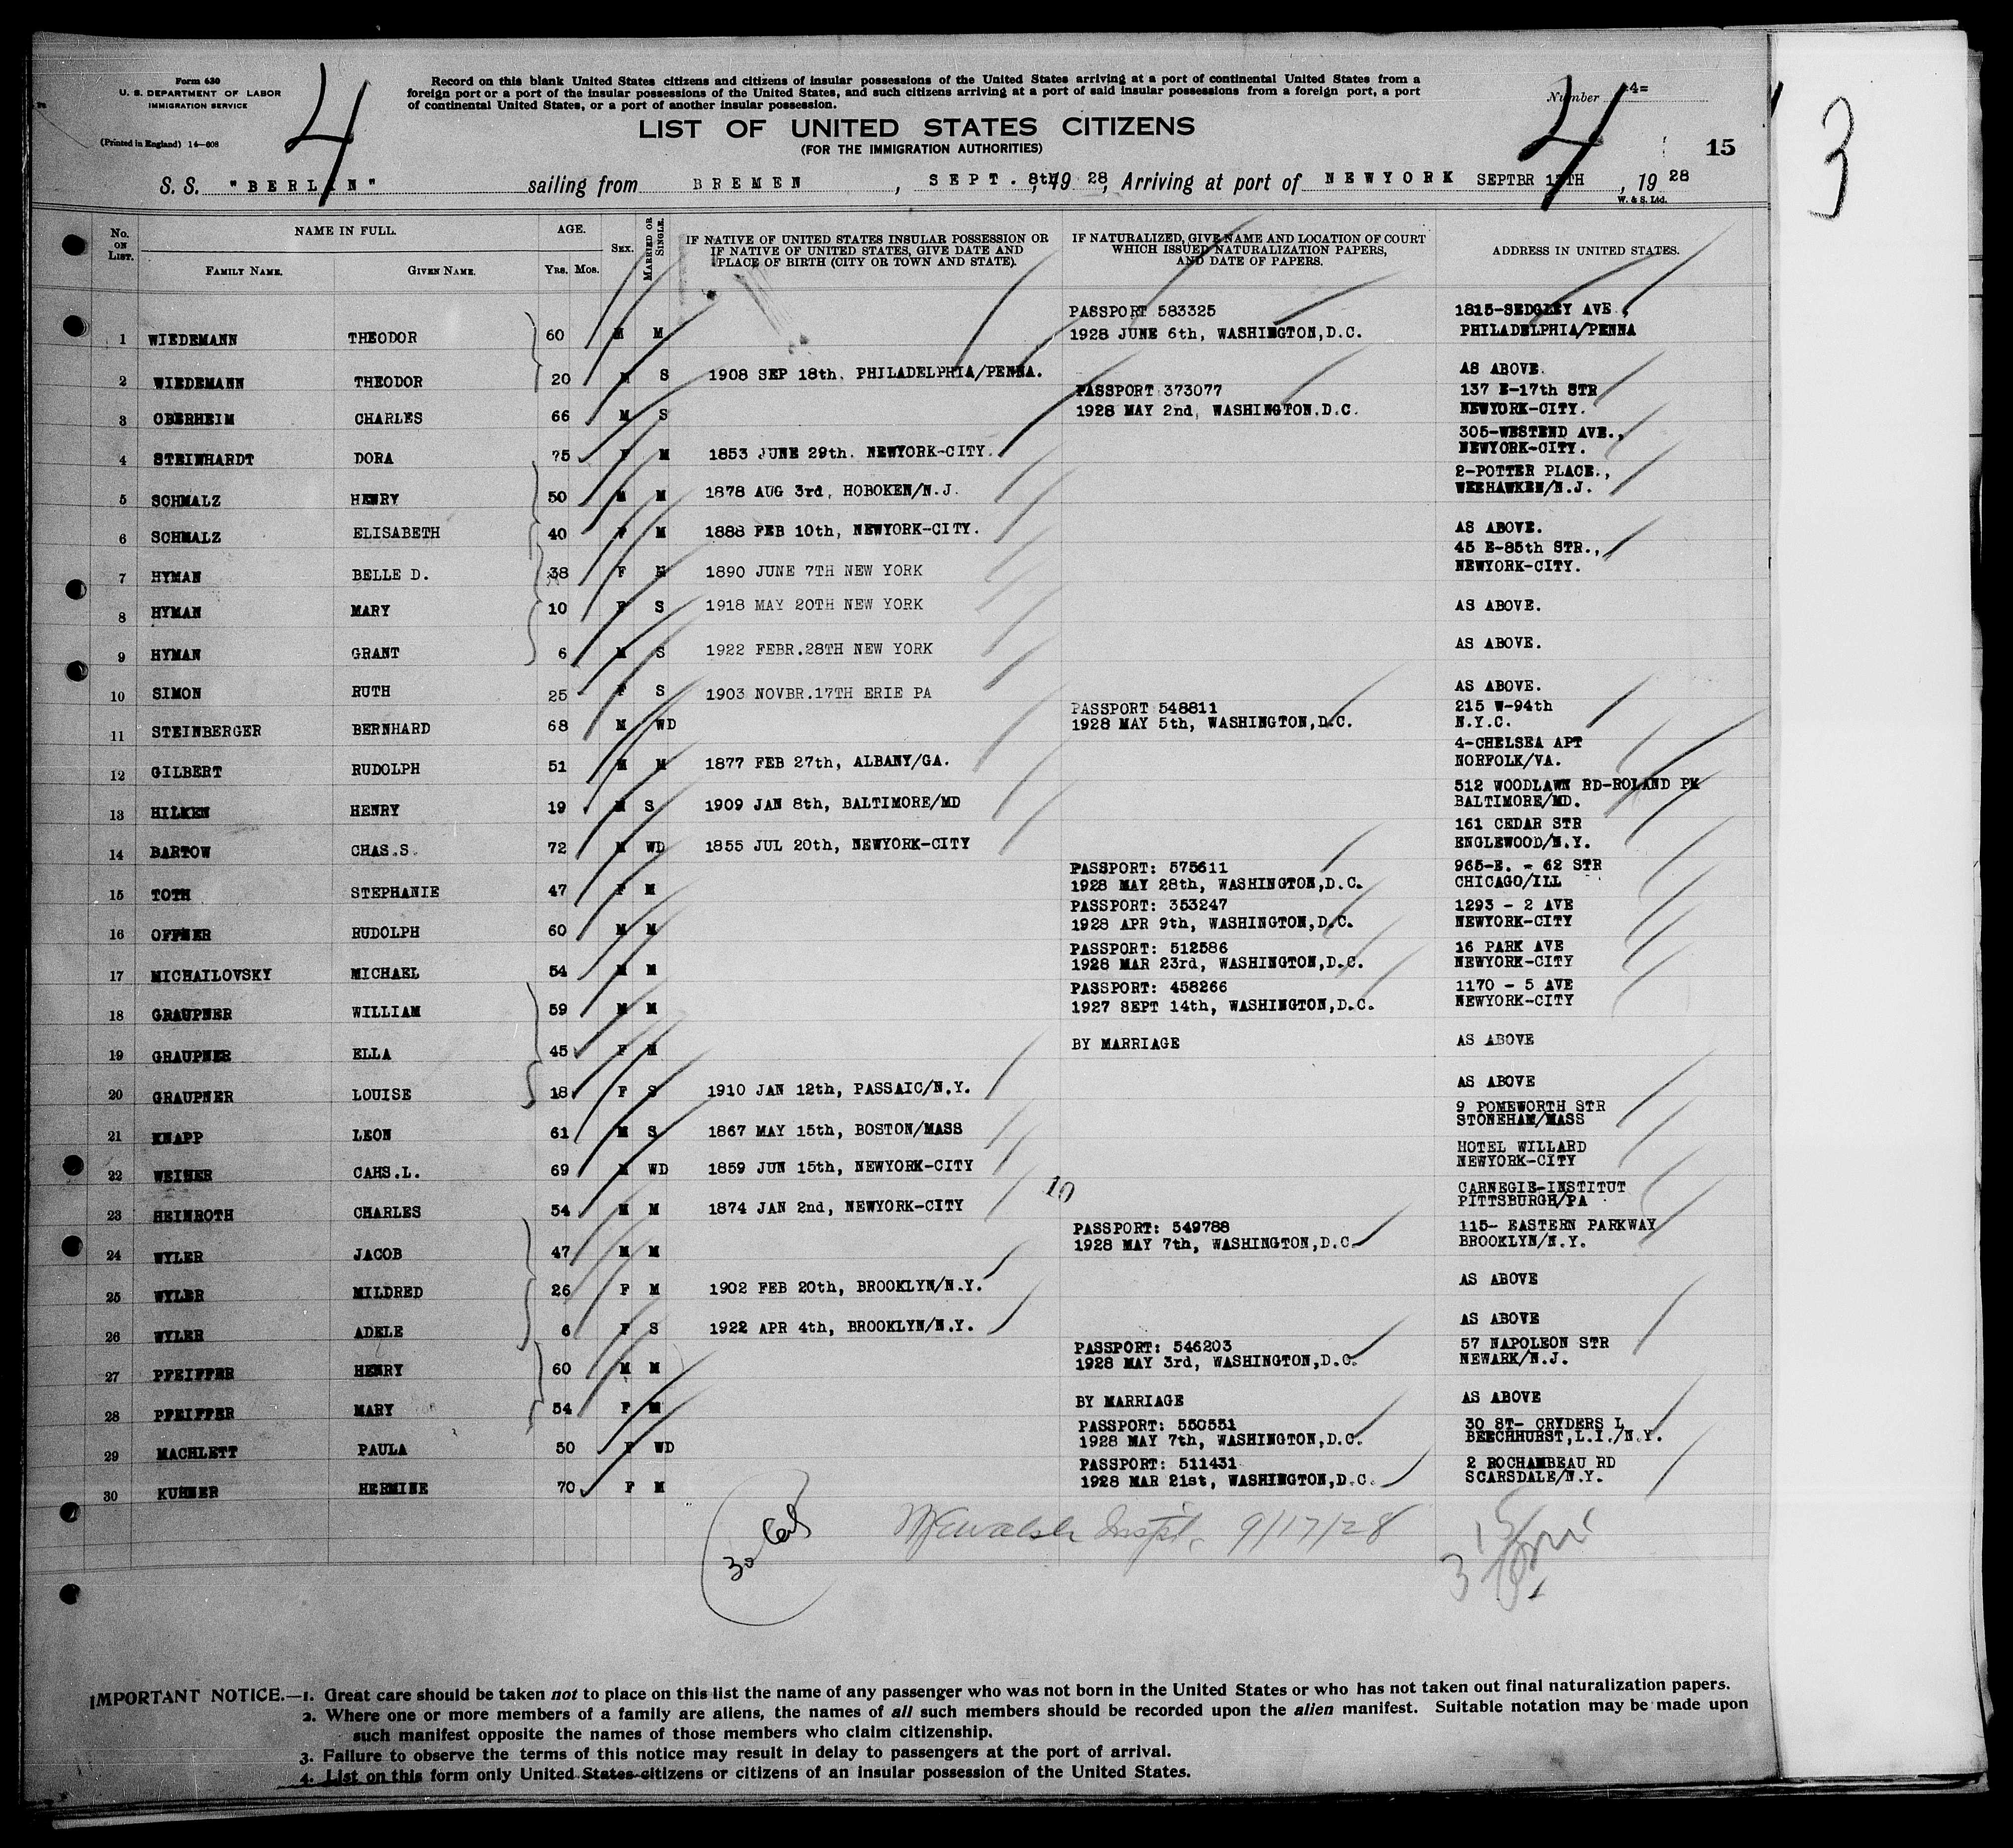 Form 630
U. S. DEPARTMENT OF LABOR
IMMIGRATION SERVICE
(Printed in England) 14—608
4
Record on this blank United States citizens and citizens of insular possessions of the United States arriving at a port of continental United States from a
foreign port or a port of the insular possessions of the United States, and such citizens arriving at a port of said insular possessions from a foreign port, a port
of continental United States, or a port of another insular possession.
LIST OF UNITED STATES CITIZENS
(FOR THE IMMIGRATION AUTHORITIES)
Number 4=
4
15
3
S. S. "BERLIN" sailing from BREMEN, SEPT. 8th, 1928, Arriving at port of NEWYORK SEPTBR 17TH, 1928
W. & S. Ltd.
No. ON LIST. NAME IN FULL. AGE. SEX. MARRIED OR SINGLE. IF NATIVE OF UNITED STATES INSULAR POSSESSION OR IF NATIVE OF UNITED STATES, GIVE DATE AND PLACE OF BIRTH (CITY OR TOWN AND STATE). IF NATURALIZED, GIVE NAME AND LOCATION OF COURT WHICH ISSUED NATURALIZATION PAPERS, AND DATE OF PAPERS. ADDRESS IN UNITED STATES.
FAMILY NAME. GIVEN NAME. Yrs. Mos.
PASSPORT 583325 1815-SEDGLEY AVE.
1 WIEDEMANN THEODOR 60 M M 1928 JUNE 6th, WASHINGTON,D.C. PHILADELPHIA/PENNA
2 WIEDEMANN THEODOR 20 M S 1908 SEP 18th. PHILADELPHIA/PENNA. AS ABOVE.
PASSPORT 373077 137 E-17th STR
3 OBERHEIM CHARLES 66 M S 1928 MAY 2nd, WASHINGTON.D.C. NEWYORK-CITY.
305-WESTEND AVE.,
4 STEINHARDT DORA 75 F M 1853 JUNE 29th. NEWYORK-CITY. NEWYORK-CITY.
2-POTTER PLACE.,
5 SCHMALZ HENRY 50 M M 1878 AUG 3rd, HOBOKEN/N.J. WEEHAWKEN/N.J.
6 SCHMALZ ELISABETH 40 F M 1888 FEB 10th, NEWYORK-CITY. AS ABOVE.
45 E-85th STR.,
7 HYMAN BELLE D. 38 F M 1890 JUNE 7TH NEW YORK NEWYORK-CITY.
8 HYMAN MARY 10 F S 1918 MAY 20TH NEW YORK AS ABOVE.
9 HYMAN GRANT 6 M S 1922 FEBR.28TH NEW YORK AS ABOVE.
10 SIMON RUTH 25 F S 1903 NOVBR.17TH ERIE PA AS ABOVE.
PASSPORT 548811 215 W-94th
11 STEINBERGER BERNHARD 68 M WD 1928 MAY 5th, WASHINGTON,D.C. N.Y.C.
4-CHELSEA APT
12 GILBERT RUDOLPH 51 M M 1877 FEB 27th, ALBANY/GA. NORFOLK/VA.
512 WOODLAWN RD-ROLAND PK
13 HILKEN HENRY 19 M S 1909 JAN 8th, BALTIMORE/MD BALTIMORE/MD.
161 CEDAR STR
14 BARTOW CHAS.S. 72 M WD 1855 JUL 20th, NEWYORK-CITY ENGLEWOOD/N.Y.
PASSPORT: 575611 965-E. - 62 STR
15 TOTH STEPHANIE 47 F M 1928 MAY 28th, WASHINGTON,D.C. CHICAGO/ILL
PASSPORT: 353247 1293 - 2 AVE
16 OFFNER RUDOLPH 60 M M 1928 APR 9th, WASHINGTON,D.C. NEWYORK-CITY
PASSPORT: 512586 16 PARK AVE
17 MICHAILOVSKY MICHAEL 54 M M 1928 MAR 23rd, WASHINGTON,D.C. NEWYORK-CITY
PASSPORT: 458266 1170 - 5 AVE
18 GRAUPNER WILLIAM 59 M M 1927 SEPT 14th, WASHINGTON,D.C. NEWYORK-CITY
19 GRAUPNER ELLA 45 F M BY MARRIAGE AS ABOVE
20 GRAUPNER LOUISE 18 F S 1910 JAN 12th, PASSAIC/N.Y. AS ABOVE
9 POMEWORTH STR
21 KNAPP LEON 61 M S 1867 MAY 15th, BOSTON/MASS STONEHAM/MASS
HOTEL WILLARD
22 WEINER CAHS.L. 69 M WD 1859 JUN 15th, NEWYORK-CITY NEWYORK-CITY
10 CARNEGIE-INSTITUT
23 HEINROTH CHARLES 54 M M 1874 JAN 2nd, NEWYORK-CITY PITTSBURGH/PA
PASSPORT: 549788 115- EASTERN PARKWAY
24 WYLER JACOB 47 M M 1928 MAY 7th, WASHINGTON,D.C. BROOKLYN/N.Y.
25 WYLER MILDRED 26 F M 1902 FEB 20th, BROOKLYN/N.Y. AS ABOVE
26 WYLER ADELE 6 F S 1922 APR 4th, BROOKLYN/N.Y. AS ABOVE
PASSPORT: 546203 57 NAPOLEON STR
27 PFEIFFER HENRY 60 M M 1928 MAY 3rd, WASHINGTON,D.C. NEWARK/N.J.
28 PFEIFFER MARY 54 F M BY MARRIAGE AS ABOVE
PASSPORT: 550551 30 ST- CRYDERS L
29 MACHLETT PAULA 50 F WD 1928 MAY 7th, WASHINGTON,D.C. BEECHHURST,L.I./N.Y.
PASSPORT: 511431 2 ROCHAMBEAU RD
30 KUHNER HERMINE 70 F M 1928 MAR 21st, WASHINGTON,D.C. SCARSDALE/N.Y.
30 9/17/28
IMPORTANT NOTICE.—1. Great care should be taken not to place on this list the name of any passenger who was not born in the United States or who has not taken out final naturalization papers.
2. Where one or more members of a family are aliens, the names of all such members should be recorded upon the alien manifest. Suitable notation may be made upon
such manifest opposite the names of those members who claim citizenship.
3. Failure to observe the terms of this notice may result in delay to passengers at the port of arrival.
4. List on this form only United States citizens or citizens of an insular possession of the United States.